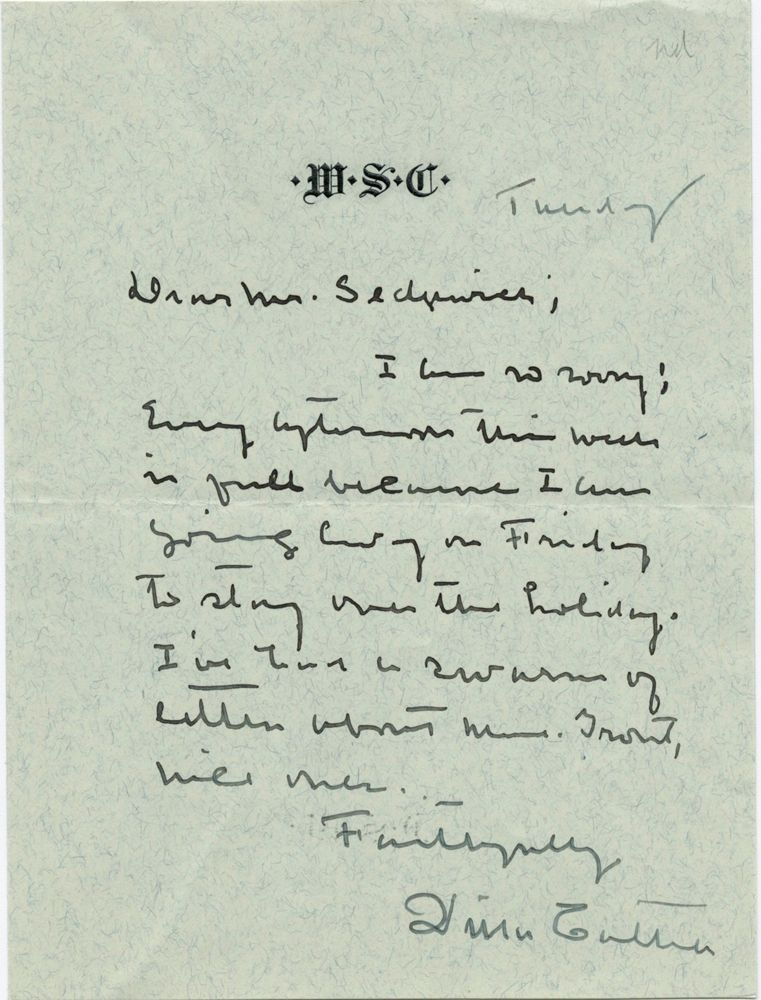 nd
·W·S·C·
Tuesday
Dear Mr. Sedgwick;
I am so sorry;
Every afternoon this week
is full because I am
going away on Friday
to stay over the holiday.
I've had a swarm of
letters about Mme. Grout,
nice ones.
Faithfully
Willa Cather